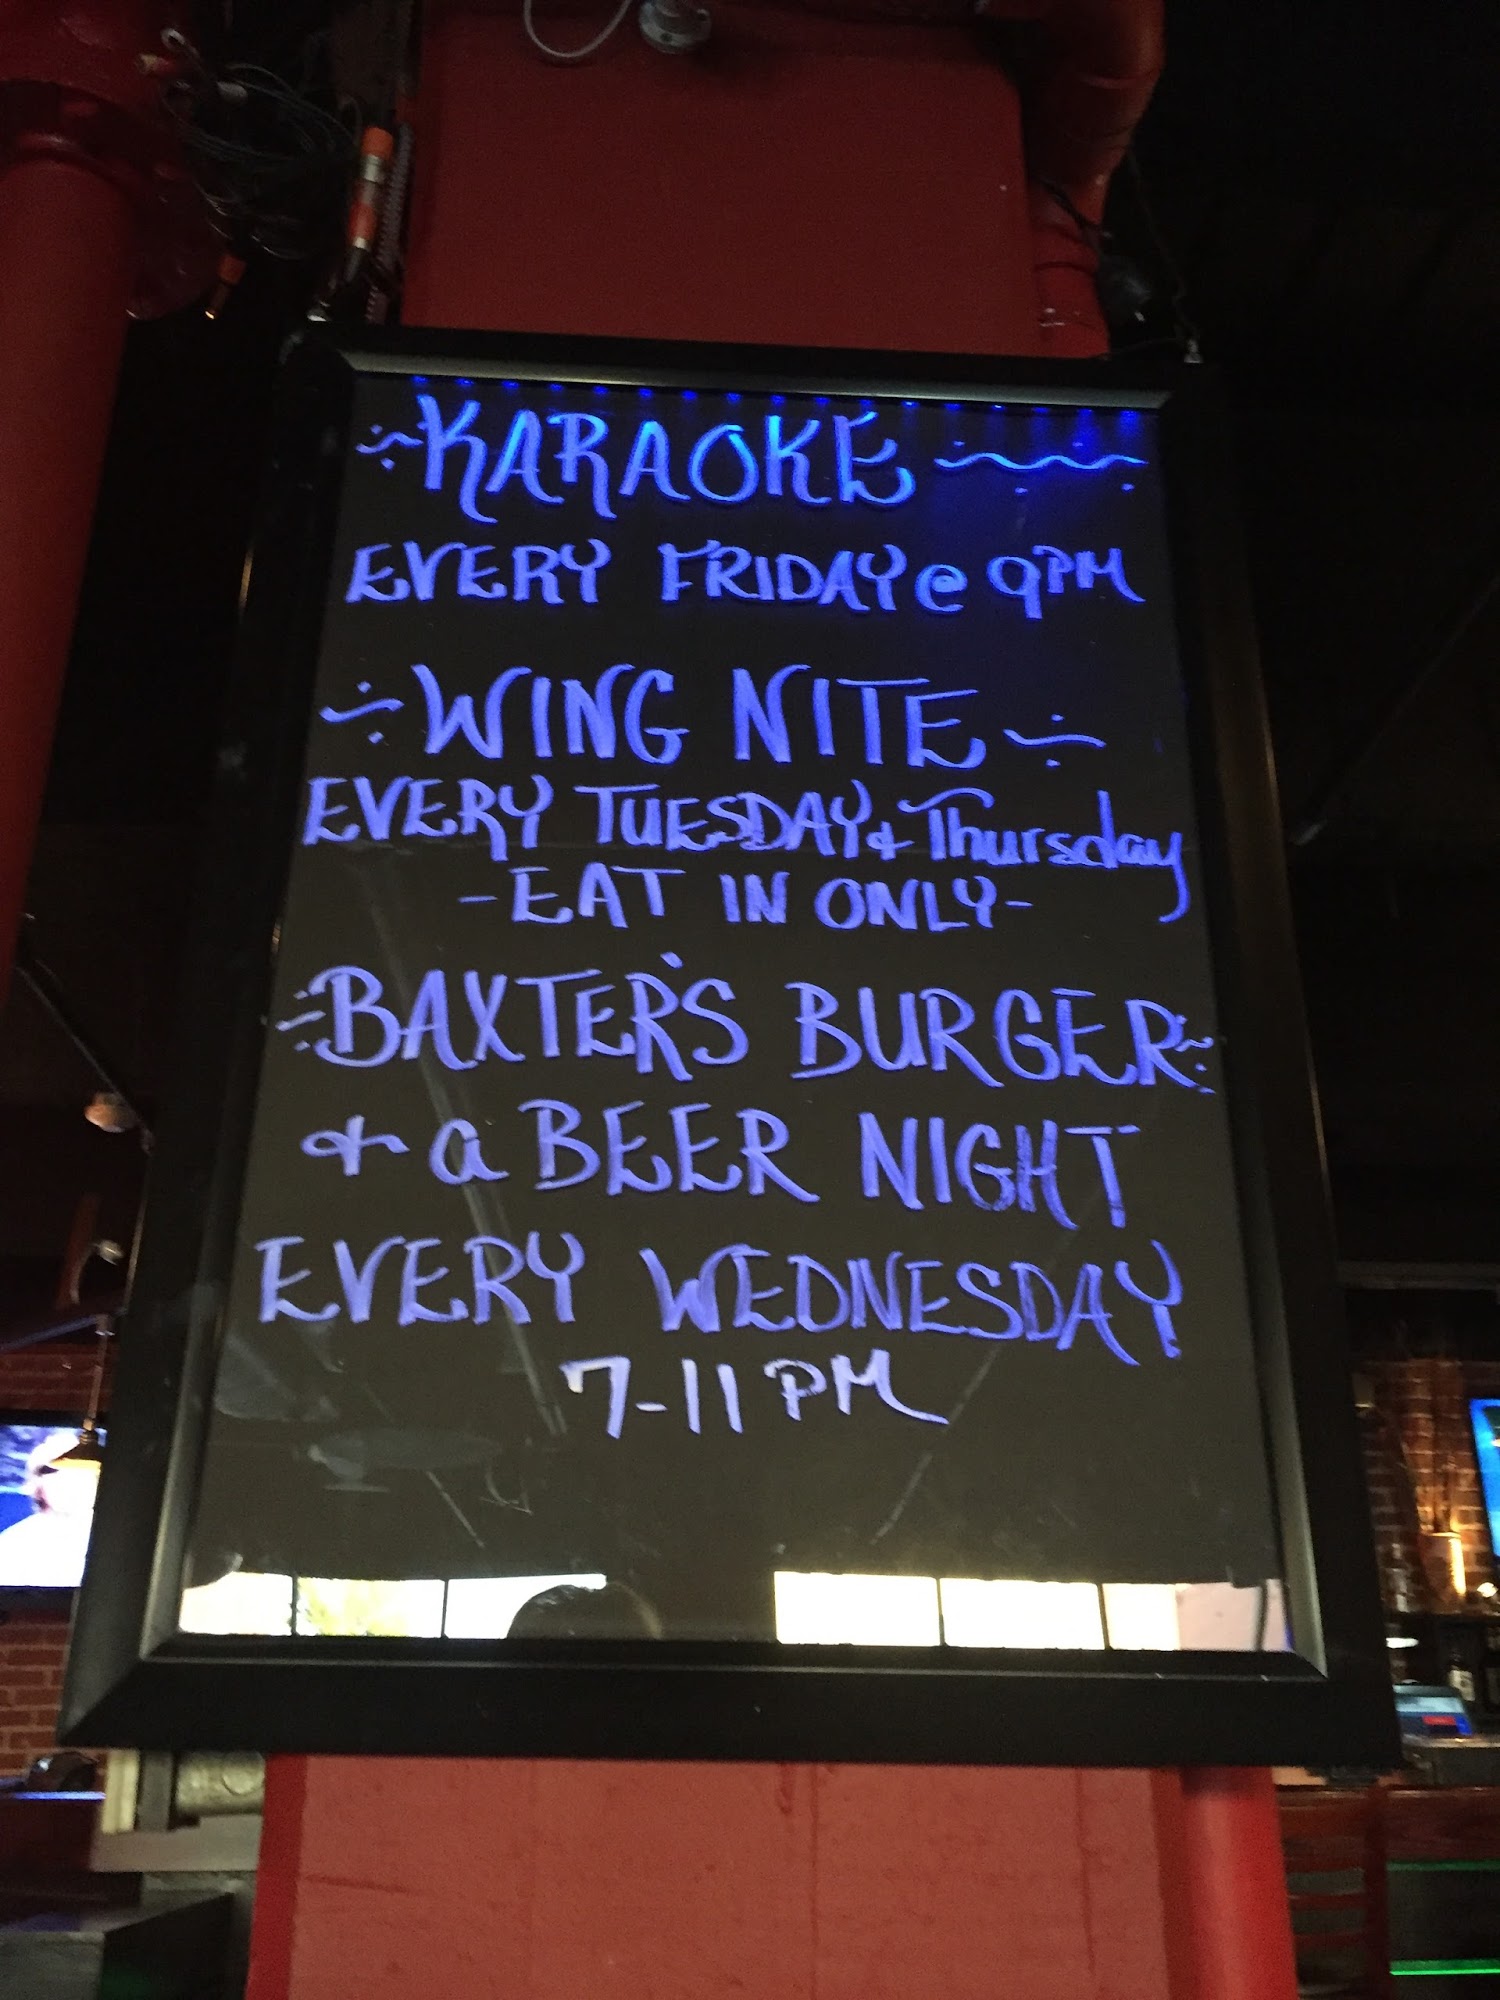 KARAOKE
EVERY FRIDAY @ 9PM
WING NITE
EVERY TUESDAY & Thursday
- EAT IN ONLY -
BAXTER'S BURGER
& a BEER NIGHT
EVERY WEDNESDAY
7-11 PM